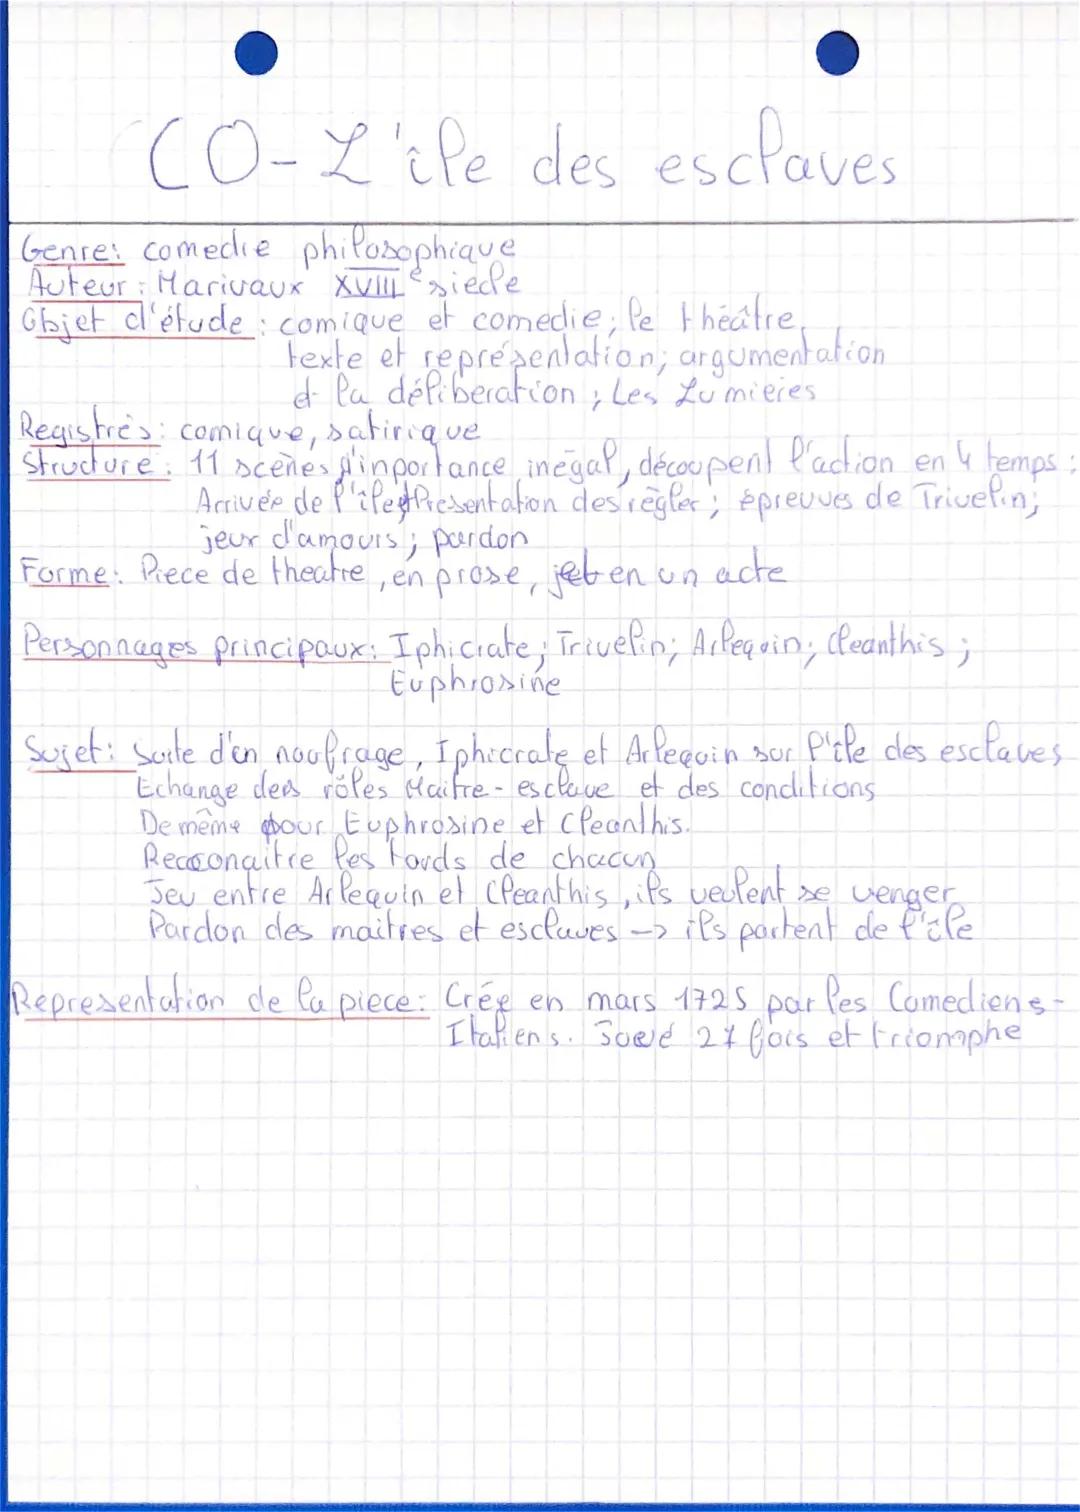 CO-L'île des esclaves
Genre: comedie philosophique
Auteur : Marivaux XVIIIe siecle
Objet d'étude : comique et comedie; le théâtre,
texte et représentation; argumentation
et la déliberation ; Les Lumieres
Registres: comique, satirique
Structure : 11 scènes d'inportance inégal, découpent l'action en 4 temps :
Arrivée de l'île et Présentation des règler ; épreuves de Trivelin;
jeux d'amours ; pardon
Forme: Piece de theatre, en prose, et en un acte
Personnages principaux: Iphicrate; Trivelin; Arlequin; Cleanthis ;
Euphrosine
Sujet: Suite d'un naufrage, Iphicrate et Arlequin sur l'île des esclaves
Echange des rôles Maitre-esclave et des conditions
De même pour Euphrosine et Cleanthis.
Reconaitre les tords de chacun
Jeu entre Arlequin et Cleanthis, ils veulent se venger
Pardon des maitres et esclaves -> ils partent de l'île
Representation de la piece: Crée en mars 1725 par les Comediens-
Italiens. Joué 21 fois et triomphe